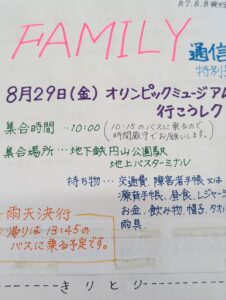 R7.8.8発行
FAMILY 通信
特別
8月29日(金) オリンピックミュージアム
行こうレク
集合時間…10:00 (10:15のバスに乗るので
時間厳守でお願いします。)
集合場所…地下鉄円山公園駅
地上バスターミナル
持ち物…交通費、障害者手帳又は
療育手帳、昼食、レジャーシ
お金、飲み物、帽子、タオ
雨具、
雨天決行
帰りは13:45の
バスに乗る予定です。
きりとり